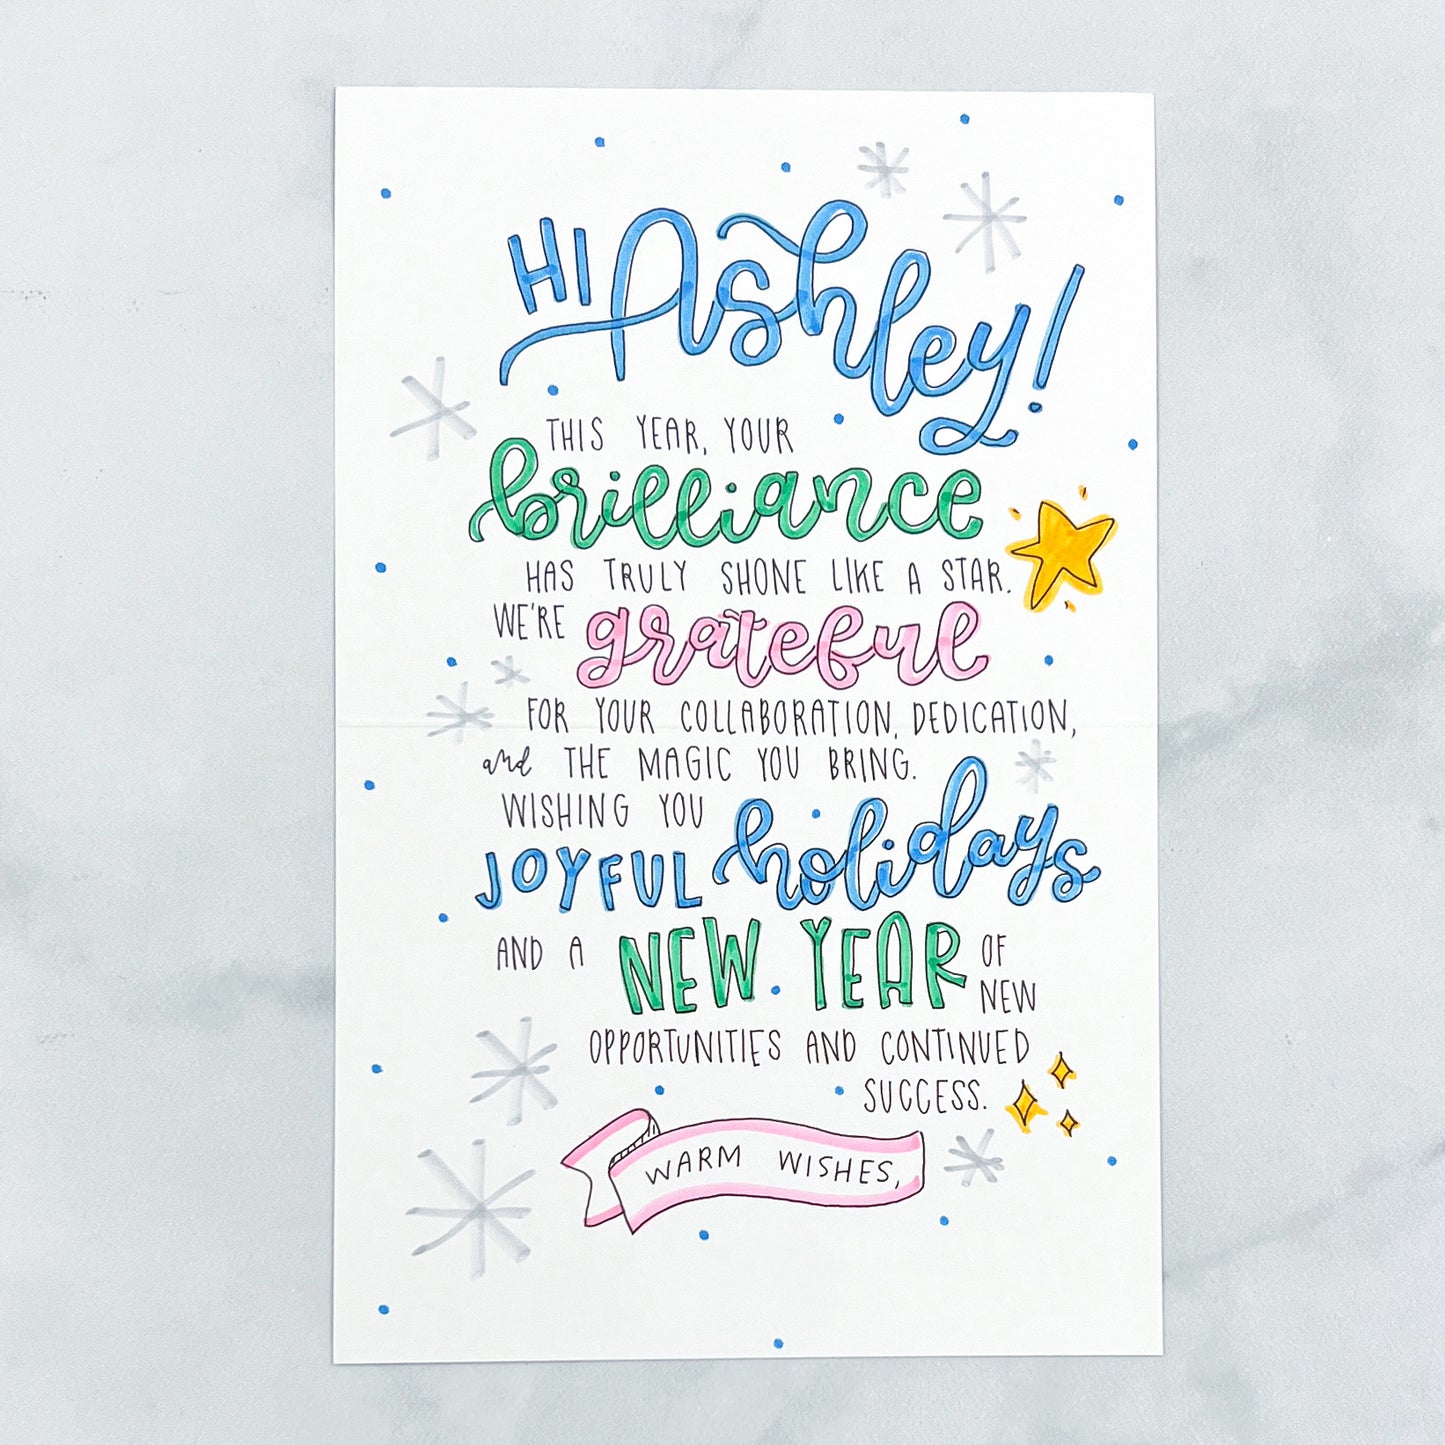 HI Ashley!
THIS YEAR, YOUR
brilliance
HAS TRULY SHONE LIKE A STAR.
WE'RE grateful
FOR YOUR COLLABORATION, DEDICATION,
and THE MAGIC YOU BRING.
WISHING YOU
JOYFUL holidays
AND A NEW YEAR OF
NEW
OPPORTUNITIES AND CONTINUED
SUCCESS.
WARM WISHES,